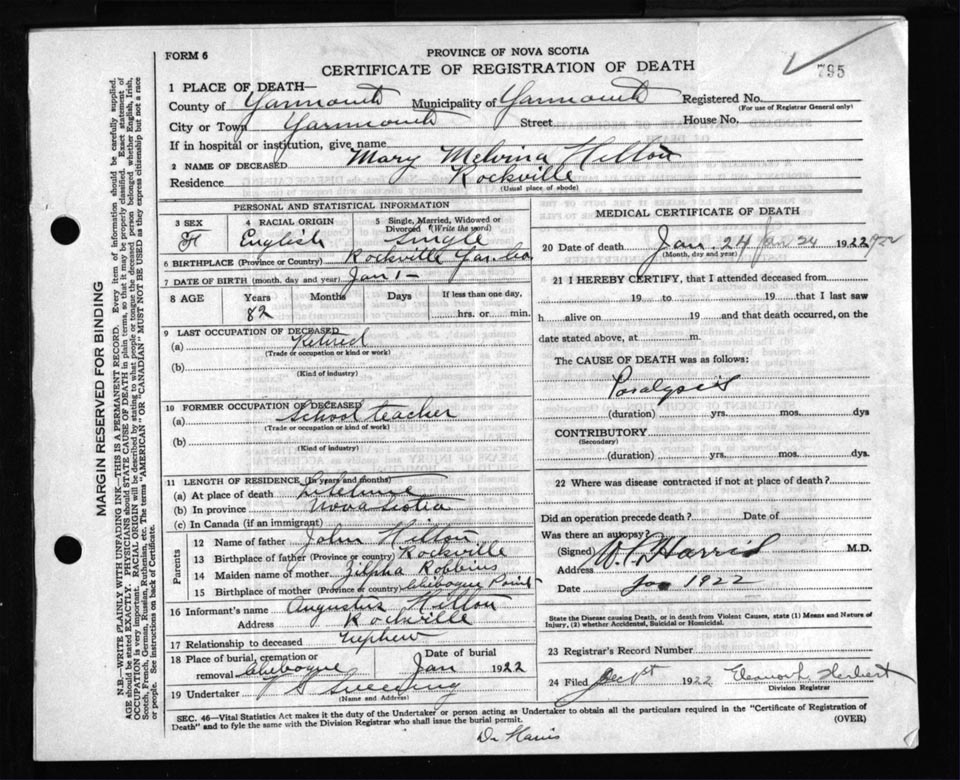 FORM 6
PROVINCE OF NOVA SCOTIA
CERTIFICATE OF REGISTRATION OF DEATH
795
1 PLACE OF DEATH—
County of Yarmouth Municipality of Yarmouth Registered No.
(For use of Registrar General only)
City or Town Yarmouth Street House No.
If in hospital or institution, give name
2 NAME OF DECEASED Mary Melvina Hilton
Residence Rockville
(Usual place of abode)
PERSONAL AND STATISTICAL INFORMATION
3 SEX F 4 RACIAL ORIGIN English 5 Single, Married, Widowed or Divorced (Write the word) Single
6 BIRTHPLACE (Province or Country) Rockville Yar. Co
7 DATE OF BIRTH (month, day and year) Jan 1 –
8 AGE Years Months Days If less than one day,
82 hrs. or min.
9 LAST OCCUPATION OF DECEASED
(a) Retired
(Trade or occupation or kind or work)
(b)
(Kind of industry)
10 FORMER OCCUPATION OF DECEASED
(a) School teacher
(Trade or occupation or kind of work)
(b)
(Kind of industry)
11 LENGTH OF RESIDENCE (In years and months)
(a) At place of death Lifetime
(b) In province Nova Scotia
(c) In Canada (if an immigrant)
Parents
12 Name of father John Hilton
13 Birthplace of father (Province or country) Rockville
14 Maiden name of mother Zilpha Robbins
15 Birthplace of mother (Province or country) Chebogue Point
16 Informant's name Augustus Hilton
Address Rockville
17 Relationship to deceased nephew
18 Place of burial, cremation or removal Chebogue Date of burial Jan 1922
19 Undertaker V S Sweeny
(Name and Address)
MEDICAL CERTIFICATE OF DEATH
20 Date of death Jan. 24 Jan 24 1922 1922
(Month, day and year)
21 I HEREBY CERTIFY, that I attended deceased from
19 to 19 that I last saw
h alive on 19 and that death occurred, on the
date stated above, at m.
The CAUSE OF DEATH was as follows:
Paralysis
(duration) yrs. mos. dys
CONTRIBUTORY
(Secondary)
(duration) yrs. mos. dys.
22 Where was disease contracted if not at place of death?
Did an operation precede death? Date of
Was there an autopsy?
(Signed) W. C. Harris M.D.
Address
Date Jan 1922
State the Disease causing Death, or in death from Violent Causes, state (1) Means and Nature of Injury, (2) whether Accidental, Suicidal or Homicidal.
23 Registrar's Record Number
24 Filed 1922 Eleanor L. Herbert
Division Registrar
SEC. 46—Vital Statistics Act makes it the duty of the Undertaker or person acting as Undertaker to obtain all the particulars required in the "Certificate of Registration of
Death" and to fyle the same with the Division Registrar who shall issue the burial permit. (OVER)
Dr Harris
MARGIN RESERVED FOR BINDING
N.B.—WRITE PLAINLY WITH UNFADING INK—THIS IS A PERMANENT RECORD. Every item of information should be carefully supplied.
AGE should be stated EXACTLY. PHYSICIANS should STATE CAUSE OF DEATH in plain terms, so that it may be properly classified. Exact statement of
OCCUPATION is very important. RACIAL ORIGIN will be described by stating to what people or tongue the deceased person belonged whether English, Irish,
Scotch, French, German, Russian, Ruthenian, etc. The terms "AMERICAN" OR "CANADIAN" MUST NOT BE USED as they express citizenship but not a race
or people. See instructions on back of Certificate.